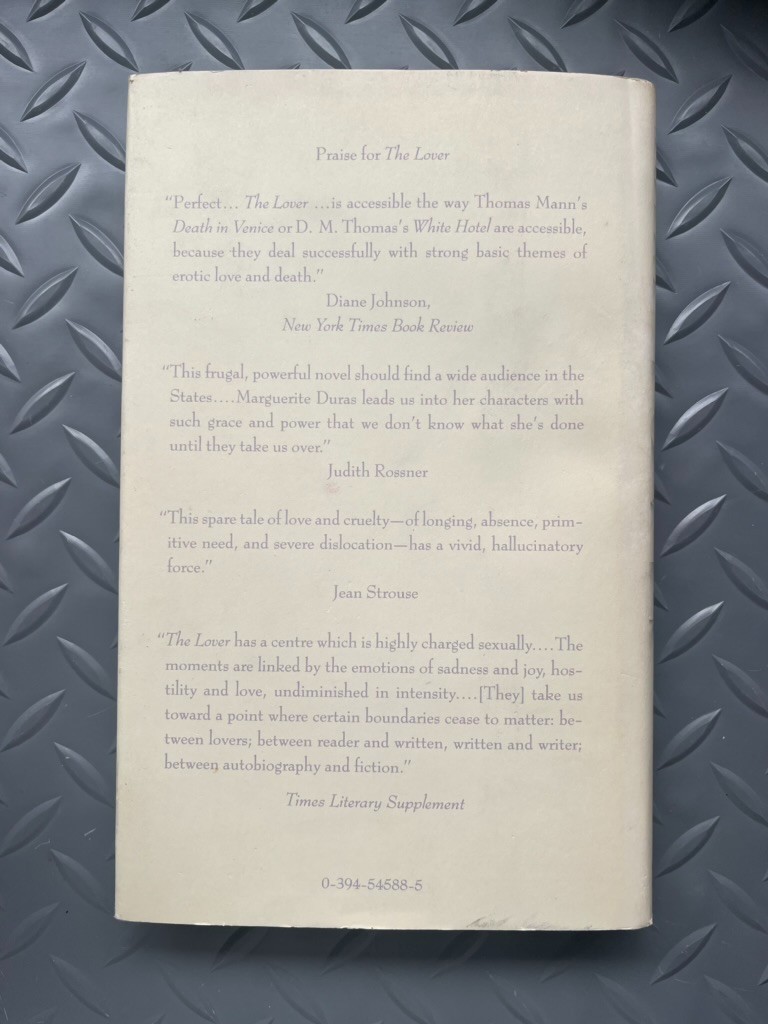 Praise for The Lover
“Perfect... The Lover ...is accessible the way Thomas Mann’s
Death in Venice or D. M. Thomas’s White Hotel are accessible,
because they deal successfully with strong basic themes of
erotic love and death.”
Diane Johnson,
New York Times Book Review
“This frugal, powerful novel should find a wide audience in the
States....Marguerite Duras leads us into her characters with
such grace and power that we don’t know what she’s done
until they take us over.”
Judith Rossner
“This spare tale of love and cruelty—of longing, absence, prim-
itive need, and severe dislocation—has a vivid, hallucinatory
force.”
Jean Strouse
“The Lover has a centre which is highly charged sexually....The
moments are linked by the emotions of sadness and joy, hos-
tility and love, undiminished in intensity....[They] take us
toward a point where certain boundaries cease to matter: be-
tween lovers; between reader and written, written and writer;
between autobiography and fiction.”
Times Literary Supplement
0-394-54588-5